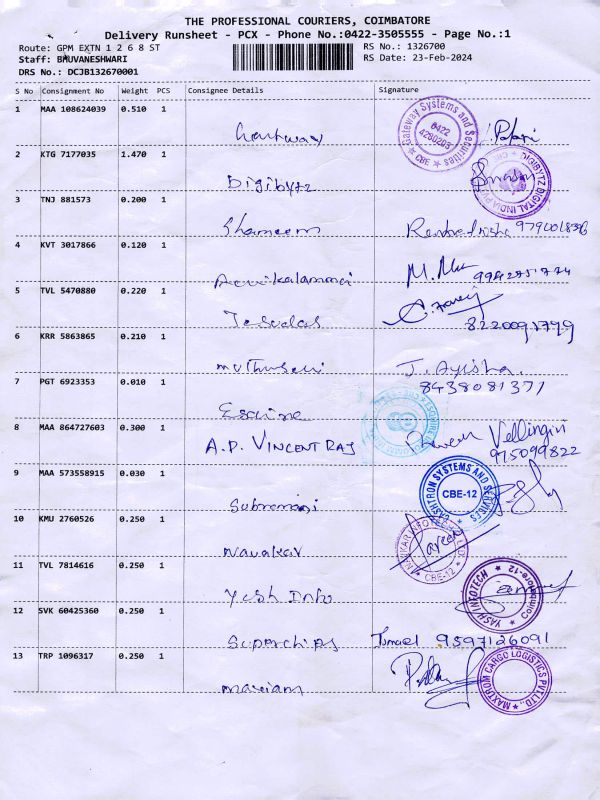 THE PROFESSIONAL COURIERS, COIMBATORE
Delivery Runsheet - PCX - Phone No.:0422-3505555 - Page No.:1
Route: GPM EXTN 1 2 6 8 ST
RS No.: 1326700
Staff: BHUVANESHWARI
RS Date: 23-Feb-2024
DRS No.: DCJB132670001
S No Consignment No Weight PCS Consignee Details Signature
1 MAA 108624039 0.510 1
Gateway Systems and Securities
0422
4280205
CBE
2 KTG 7177035 1.470 1
Digibytz
DIGIBYTZ DIGITAL INDIA PVT
3 TNJ 881573 0.200 1
Shameem
4 KVT 3017866 0.120 1
5 TVL 5470880 0.220 1
Jesudas
8220091779
6 KRR 5863865 0.210 1
J. Ayisha
8438081371
7 PGT 6923353 0.010 1
8 MAA 864727603 0.300 1
A.P. VINCENT RAJ
Vellingiri
915099822
9 MAA 573558915 0.030 1
Submani
YASHTRON SYSTEMS AND SERVICES
CBE-12
10 KMU 2760526 0.250 1
Navakar
CBE-12
11 TVL 7814616 0.250 1
Yash Info
YASH INFOTECH
Coimbatore-12
12 SVK 60425360 0.250 1
Superchips Ismael 9597126091
13 TRP 1096317 0.250 1
mariam
MAXTROM CARGO LOGISTICS PVT LTD.,